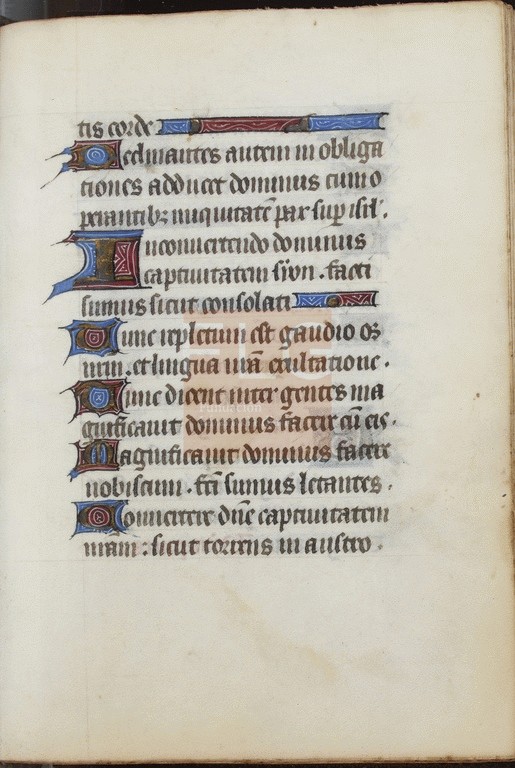 tis corde
Declinantes autem in obliga
tiones adducet dominus cum o
perantib; iniquitatē pax sup isrl'.
In convertendo dominus
captivitatem syon . facti
sumus sicut consolati
Tunc repletum est gaudio os
nrm . et lingua nrā exultatione .
Tunc dicent inter gentes ma
gnificavit dominus facere cū eis .
Magnificavit dominus facere
nobiscum . fcī sumus letantes .
Convertere dn̄e captivitatem
nrām : sicut torrens in austro .
FLG
Fundación